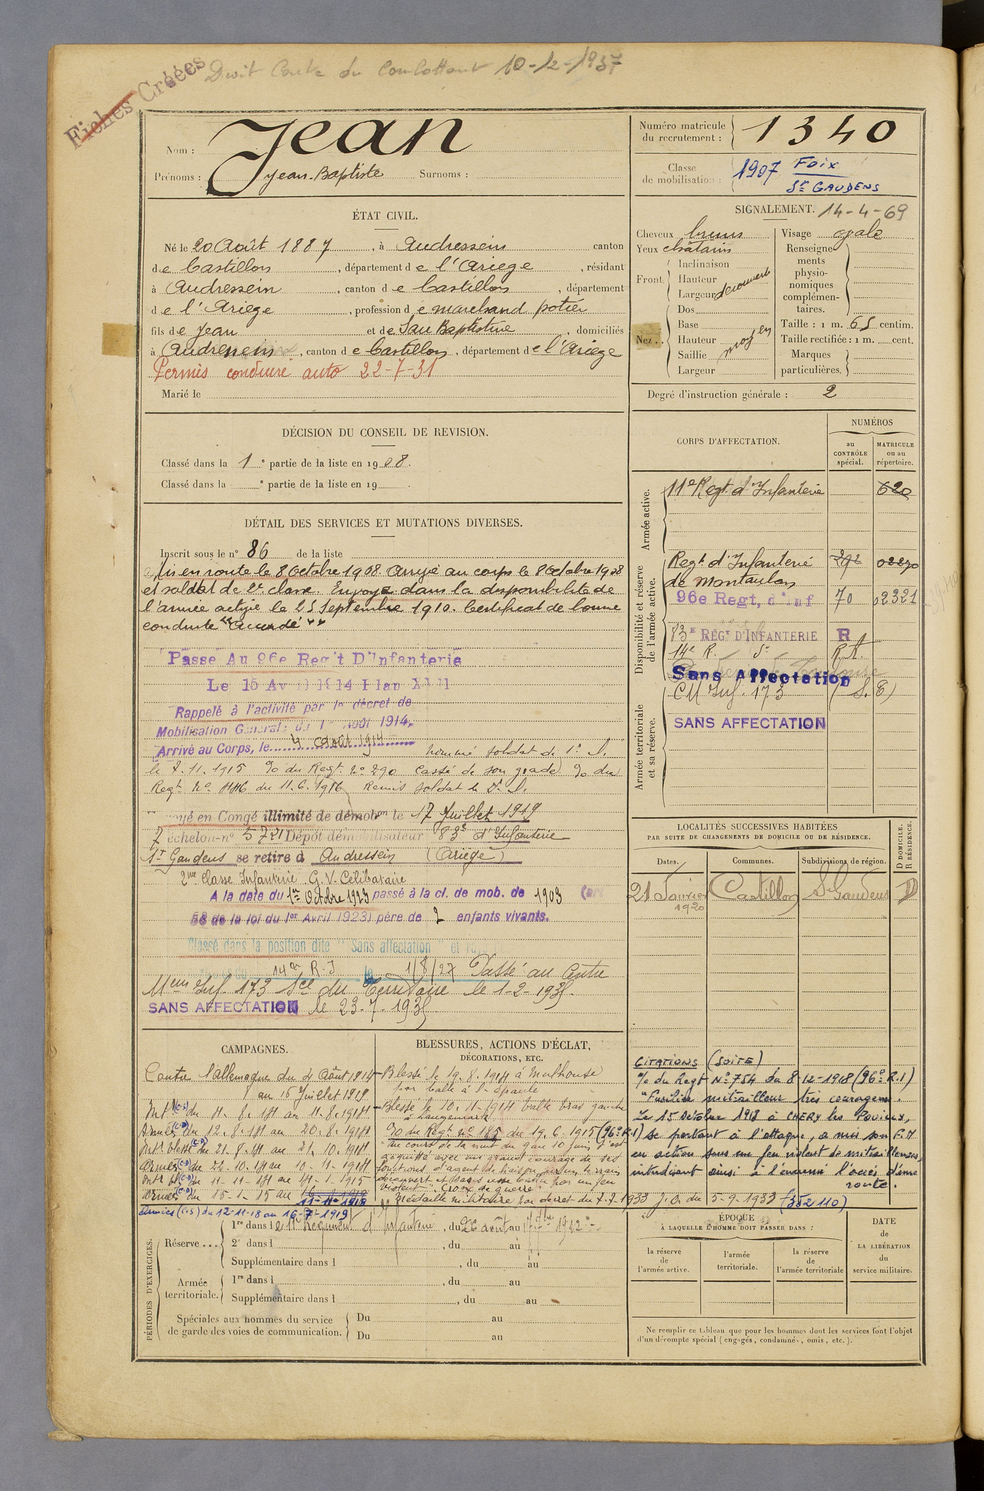 Fiches Créées
Droit Carte du Combattant 10-12-1937
Nom : Jean
Prénoms : Jean-Baptiste Surnoms :
Numéro matricule du recrutement : 1340
Classe de mobilisation : 1907 Foix
St GAUDENS
ÉTAT CIVIL.
Né le 20 Août 1887, à Audressein canton
de Castillon, département de l'Ariège, résidant
à Audressein, canton de Castillon, département
de l'Ariège, profession de marchand potier
fils de Jean et de Sau Baptistine, domiciliés
à Audressein, canton de Castillon, département de l'Ariège
Permis conduire auto 22-7-31
Marié le
SIGNALEMENT. 14-4-69
Cheveux bruns
Yeux chatains
Front. Inclinaison
Hauteur
Largeur découvert
Nez. Dos
Base
Hauteur moyen
Saillie
Largeur
Visage ovale
Renseignements physionomiques complémentaires.
Taille : 1 m. 65 centim.
Taille rectifiée : 1 m. cent.
Marques particulières.
Degré d'instruction générale : 2
DÉCISION DU CONSEIL DE REVISION.
Classé dans la 1e partie de la liste en 1908.
Classé dans la e partie de la liste en 19
DÉTAIL DES SERVICES ET MUTATIONS DIVERSES.
Inscrit sous le n° 86 de la liste
Mis en route le 8 Octobre 1908. Arrivé au corps le 8 Octobre 1908
et soldat de 2e classe. Envoyé dans la disponibilité de
l'armée active le 25 Septembre 1910. Certificat de bonne
conduite "Accordé"
Passé Au 96e Reg't D'Infanterie
Le 15 Avril 1914 Plan XVII
Rappelé à l'activité par le décret de
Mobilisation Générale du 1er Août 1914
Arrivé au Corps, le 4 août 1914 nommé soldat de 1e
le 7.11.1915 du Regt n° 290 Cassé de son grade du
Regt n° du 11.6.1916 Remis soldat
Congé illimité de démobon le 17 Juillet 1919
échelon n° Dépôt démobilisateur 83e d'Infanterie
St Gaudens se retire à Audressein (Ariège)
2me Classe Infanterie G.V. Célibataire
A la date du 1er Octobre 1923 passé à la cl. de mob. de 1903
58 de la loi du 1er Avril 1923) père de 2 enfants vivants.
Classé dans la position dite "Sans affectation" et
14e R.I le 1/8/27 Passé au Centre
Mm Inf. 173 du Territoire le 1-2-193
SANS AFFECTATION le 23-7-193
CORPS D'AFFECTATION.
NUMÉROS
au CONTRÔLE spécial.
MATRICULE ou au répertoire.
Armée active.
11e Regt d'Infanterie 620
Disponibilité et réserve de l'armée active.
Regt d'Infanterie 02270
de Montauban
96e Regt, d'inf 70 02321
83e REGt D'INFANTERIE R
14e R.
Sans Affectation
CM Inf. 173
SANS AFFECTATION
Armée territoriale et sa réserve.
LOCALITÉS SUCCESSIVES HABITÉES
PAR SUITE DE CHANGEMENTS DE DOMICILE OU DE RÉSIDENCE.
Dates. Communes. Subdivisions de région. D DOMICILE. R RÉSIDENCE.
21 Janvier 1920 Castillon St Gaudens D
CAMPAGNES.
Contre l'Allemagne du 4 Août 1914
au 16 Juillet 1919
Int (CS) du 11-8-14 au
du 12.8.14 au 20.8.1914
Int blessé du 21.8.14 au 21.10.1914
du 22-10.14 au 10-11-1914
du 11-11-14 au 14-1-1915
du 15-1-15 au 11-11-1918
(CS) du 12-11-18 au 16-7-1919
BLESSURES, ACTIONS D'ÉCLAT,
DÉCORATIONS, ETC.
Blessé le 19.8.1914 à Mulhouse
par balle à l'épaule
Blessé le 10.11.1914 balle bras gauche
à Langemark
du Regt n° 185 du 19.6.1915 (96e R.I)
au cours de la nuit du 9 au 10 juin s'est
acquitté avec un grand courage de ses
fonctions d'agent de liaison
violent. Croix de guerre
Médaille militaire par décret du 7.7.1933 J.O. du 5-9-1933 (352 110)
CITATIONS (SUITE)
% du Regt N° 754 du 8-12-1918 (96e R.I)
"Fusilier mitrailleur très courageux.
Le 15 Octobre 1918 à CHERY les Pouilly,
se portant à l'attaque, a mis son F.M
en action sous un feu violent de mitrailleuses,
interdisant ainsi à l'ennemi l'accès d'une
route.
PÉRIODES D'EXERCICES.
Réserve 1re dans le 11e Régiment d'Infanterie, du 26 août au 1912
2e dans l , du au
Supplémentaire dans l , du au
Armée territoriale. 1re dans l , du au
Supplémentaire dans l , du au
Spéciales aux hommes du service de garde des voies de communication. Du au
Du au
ÉPOQUE
À LAQUELLE L'HOMME DOIT PASSER DANS :
la réserve de l'armée active.
l'armée territoriale.
la réserve de l'armée territoriale
DATE de LA LIBÉRATION du service militaire.
Ne remplir ce tableau que pour les hommes dont les services font l'objet
d'un décompte spécial (engagés, condamnés, omis, etc.).